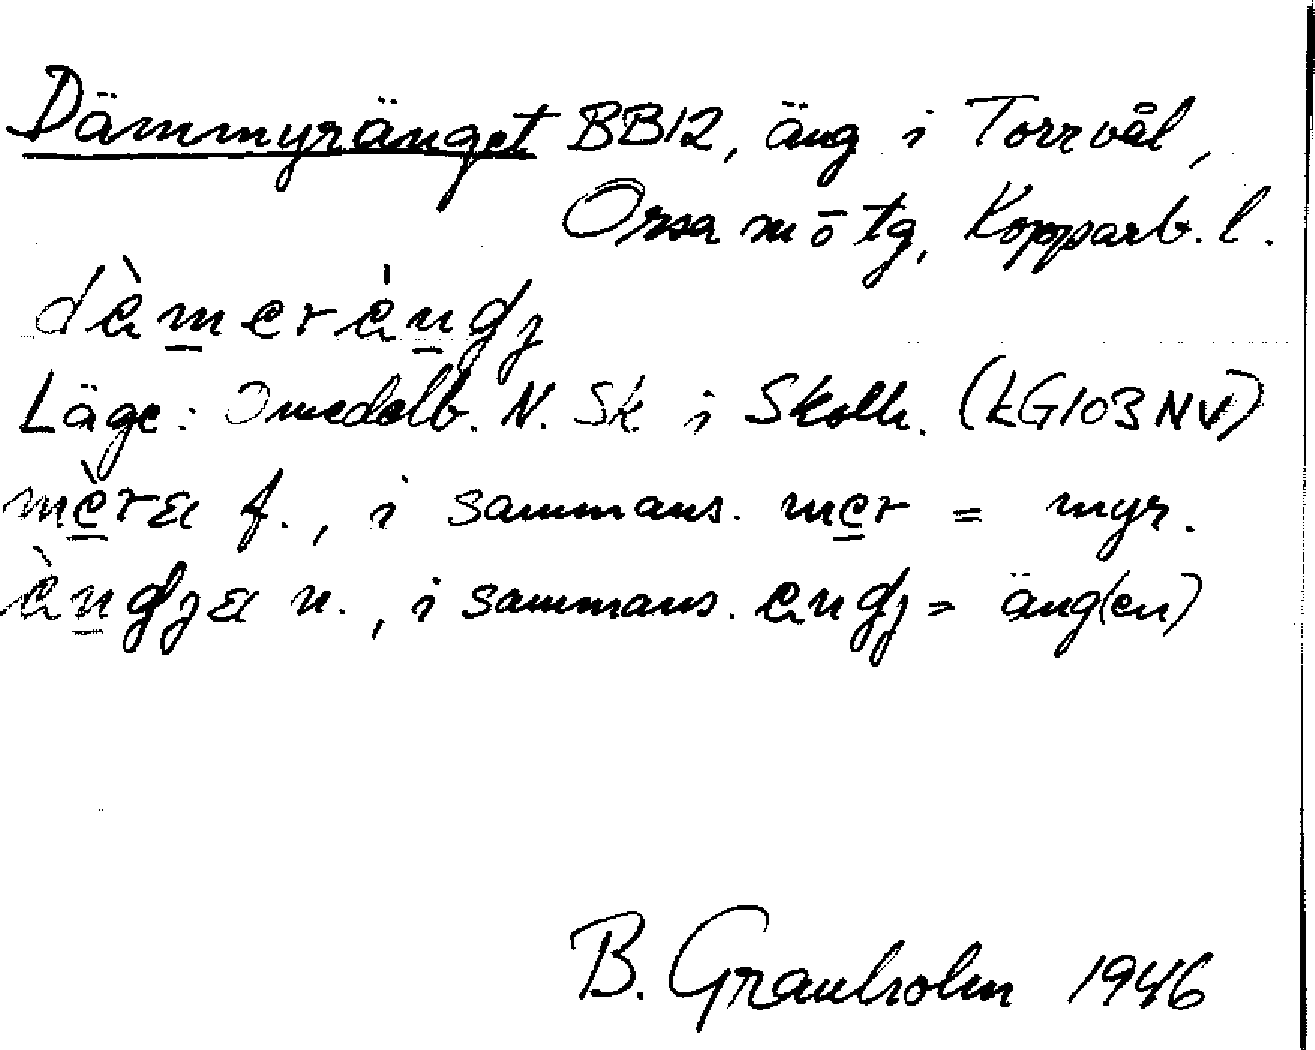 Dämmyränget BB12, äng i Torrvål,
Orsa m ō tg, Kopparb. l.
dὲmerὲngj
Läge: Omedelb. N. Sk i Skolh. (LG103NV)
mèra f., i sammans. mer = myr.
èngja n., i sammans. engj = äng(en)
B. Granholm 1946